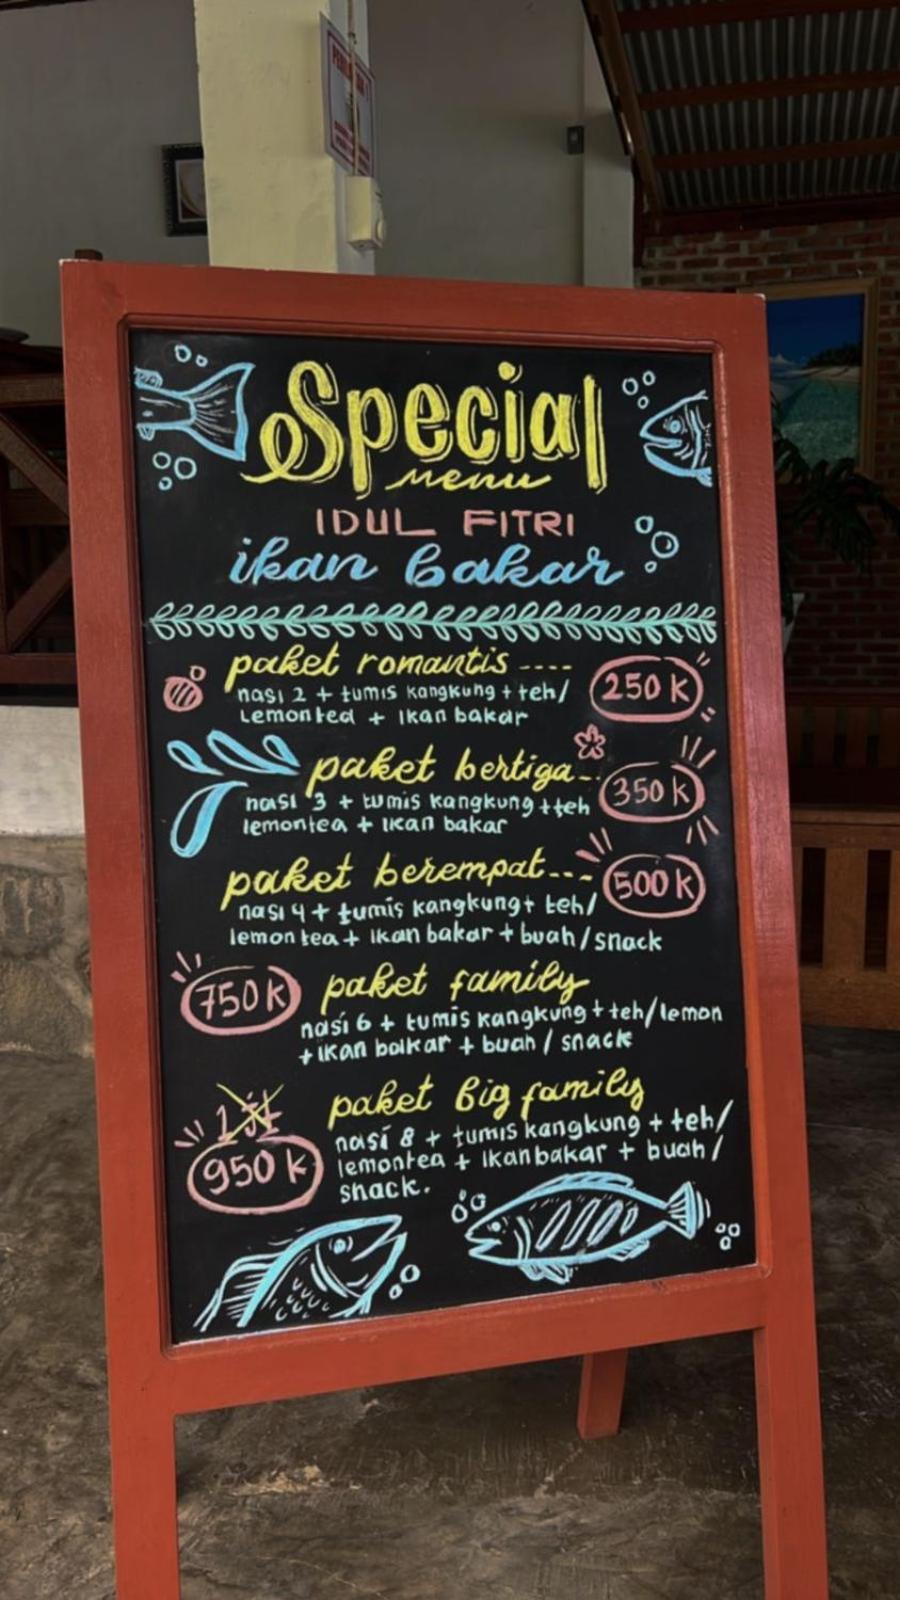 Special
menu
IDUL FITRI
ikan bakar
paket romantis ---- 250 k
nasi 2 + tumis kangkung + teh/
Lemontea + Ikan bakar
paket bertiga-- 350 k
nasi 3 + tumis kangkung + teh
lemontea + ikan bakar
paket berempat--- 500 k
nasi 4 + tumis kangkung + teh/
lemon tea + Ikan bakar + buah / snack
750 k paket family
nasi 6 + tumis kangkung + teh/lemon
+ ikan balkar + buah / snack
paket big family
1 jt
nasi 8 + tumis kangkung + teh/
950 k
lemontea + Ikan bakar + buah /
snack.